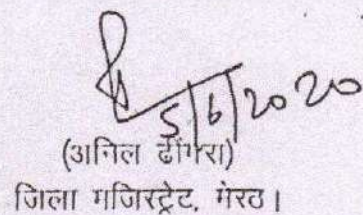 5/6/2020
(अनिल ढींगरा)
जिला मजिस्ट्रेट, मेरठ।